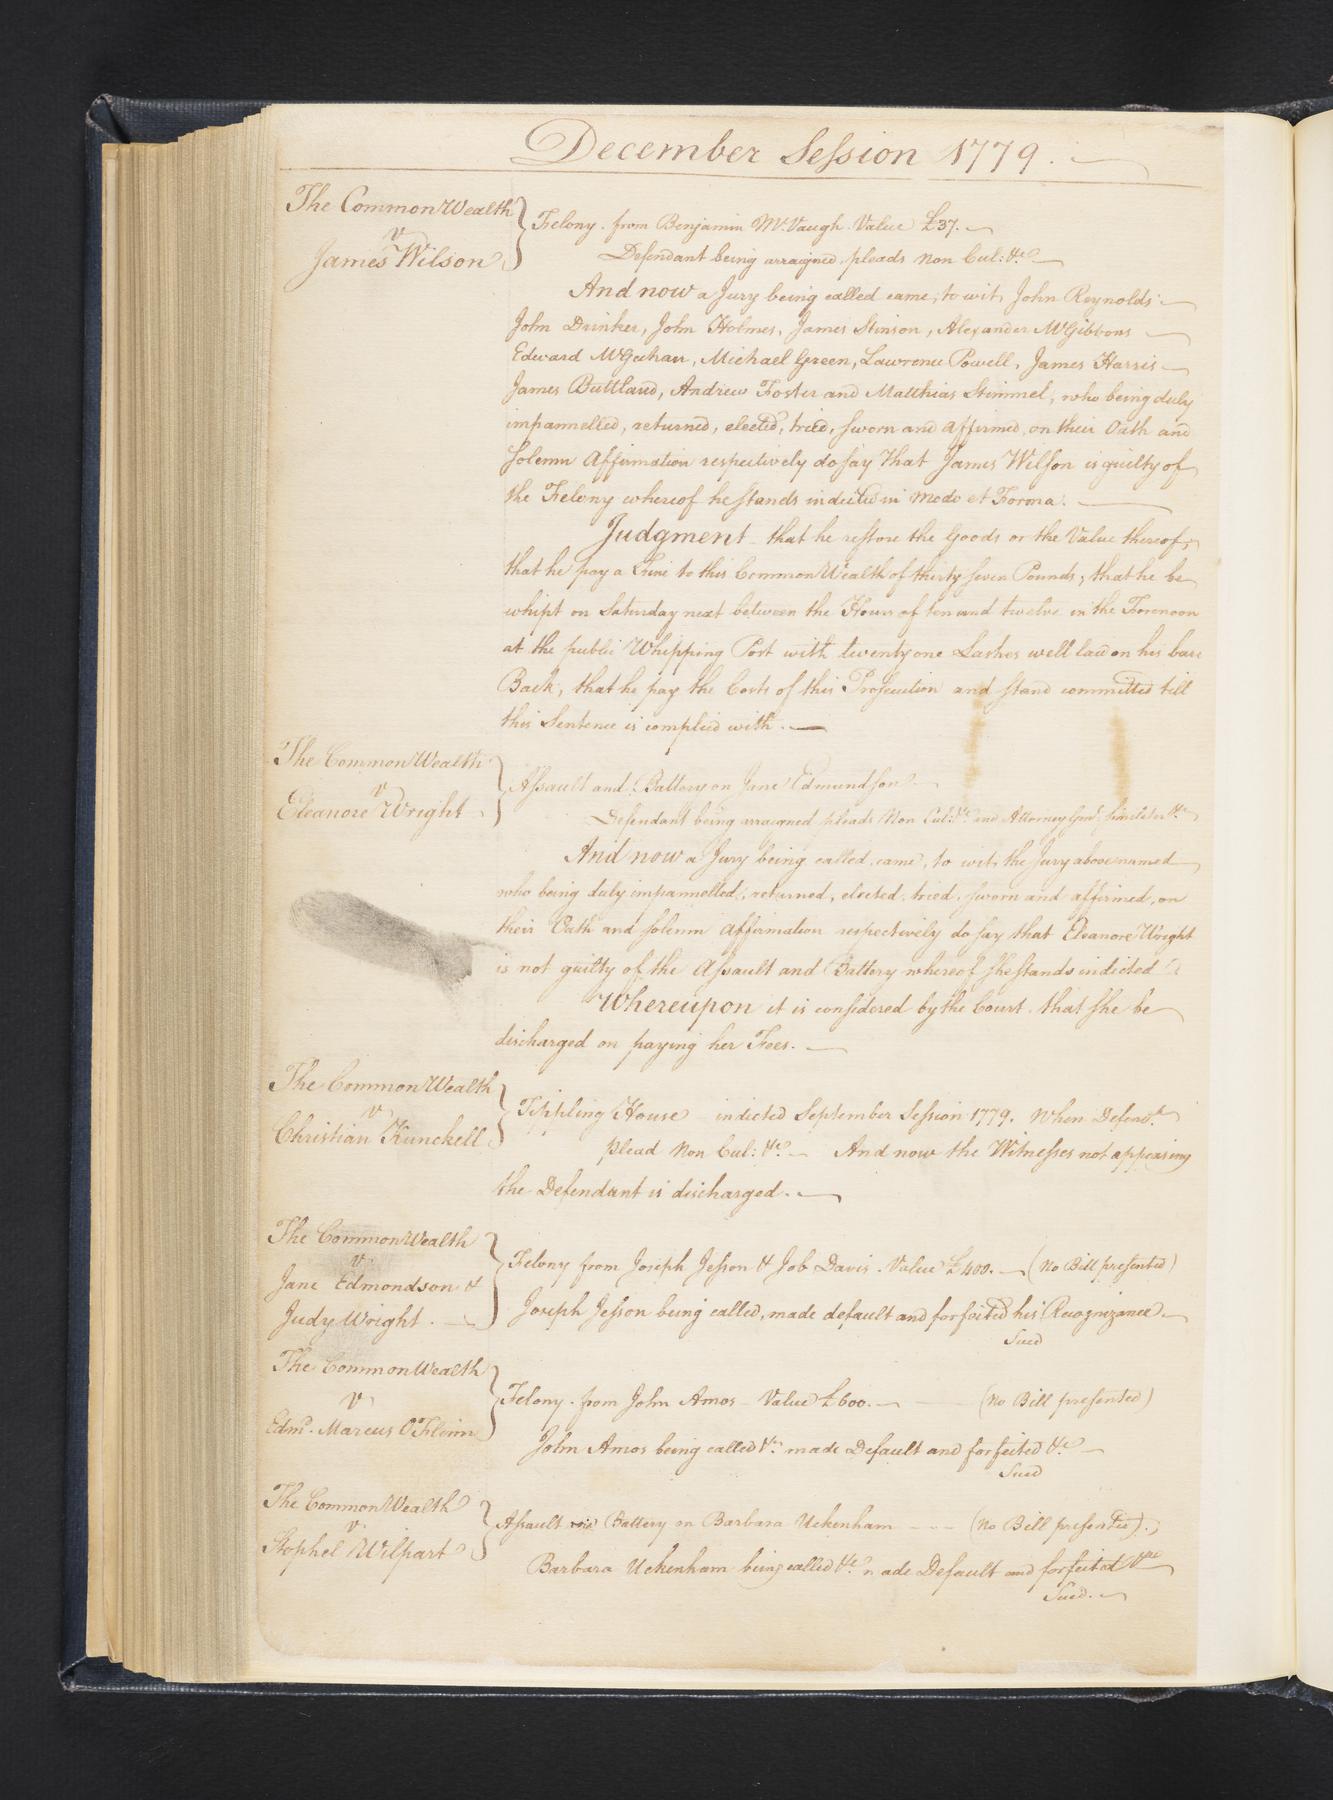 December Session 1779.
The CommonWealth
v
James Wilson
Felony. from Benjamin McVaugh. Value £37.
Defendant being arraigned, pleads Non Cul: &c
And now a Jury being called came, to wit, John Reynolds
John Drinker, John Holmes, James Stinson, Alexander McGibbons
Edward McGechan, Michael Green, Lawrence Powell, James Harris
James Buttland, Andrew Foster and Matthias Stimmel, who being duly
impannelled, returned, elected, tried, sworn and affirmed, on their Oath and
solemn Affirmation respectively do say That James Wilson is guilty of
the Felony whereof he stands indicted in Modo et Forma.
Judgment that he restore the Goods or the Value thereof,
that he pay a Fine to this CommonWealth of thirty seven Pounds, that he be
whipt on Saturday next between the Hours of ten and twelve in the Forenoon
at the public Whipping Post with twenty one Lashes well laid on his bare
Back, that he pay the Costs of this Prosecution and stand committed till
this Sentence is complied with.
The CommonWealth
v
Eleanore Wright
Assault and Battery on Jane Edmundson
Defendant being arraigned pleads Non Cul: &c and Attorney Genl. similiter &c
And now a Jury being called, came, to wit, the Jury above named
who being duly impannelled, returned, elected, tried, sworn and affirmed, on
their Oath and solemn Affirmation respectively do say that Eleanore Wright
is not guilty of the Assault and Battery whereof she stands indicted
Whereupon it is considered by the Court that she be
discharged on paying her Fees.
The CommonWealth
v
Christian Kunckell
Tippling House indicted September Session 1779. When Defendt.
plead Non Cul: &c And now the Witnesses not appearing
the Defendant is discharged.
The CommonWealth
v
Jane Edmondson &
Judy Wright.
Felony from Joseph Jesson & Job Davis. Value £400. (No Bill presented)
Joseph Jesson being called, made default and forfeited his Recognizance
Sued
The CommonWealth
v
Edmd. Marcus O'Flinn
Felony. from John Amos Value £600. (No Bill presented)
John Amos being called &c made Default and forfeited &c
Sued
The CommonWealth
v
Stophel Wilpart
Assault and Battery on Barbara Uckenham (No Bill presented).
Barbara Uckenham being called &c made Default and forfeited &c
Sued.